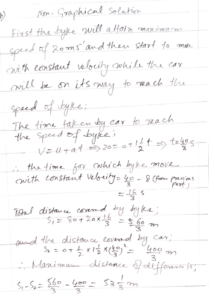 b) Non-Graphical Solution
First the byke will attain maximum
speed of 20ms⁻¹ and then start to move
with constant velocity while the car
will be on its way to reach the
speed of byke;
The time taken by car to reach
the speed of byke;
V=u+at ⇒ 20 = 0 + 1½ t ⇒ t = 40/3 s
∴ the time for which byke move
with constant velocity = 40/3 - 8 (from previous part)
= 16/3 s
Total distance covered by byke;
S₁ = 80+20×16/3 = 560/3 m
and the distance covered by car;
S₂ = 0 + ½ × 1½ (40/3)² = 400/3 m
∴ Maximum distance of difference is;
S₁-S₂ = 560/3 - 400/3 = 53⅓ m